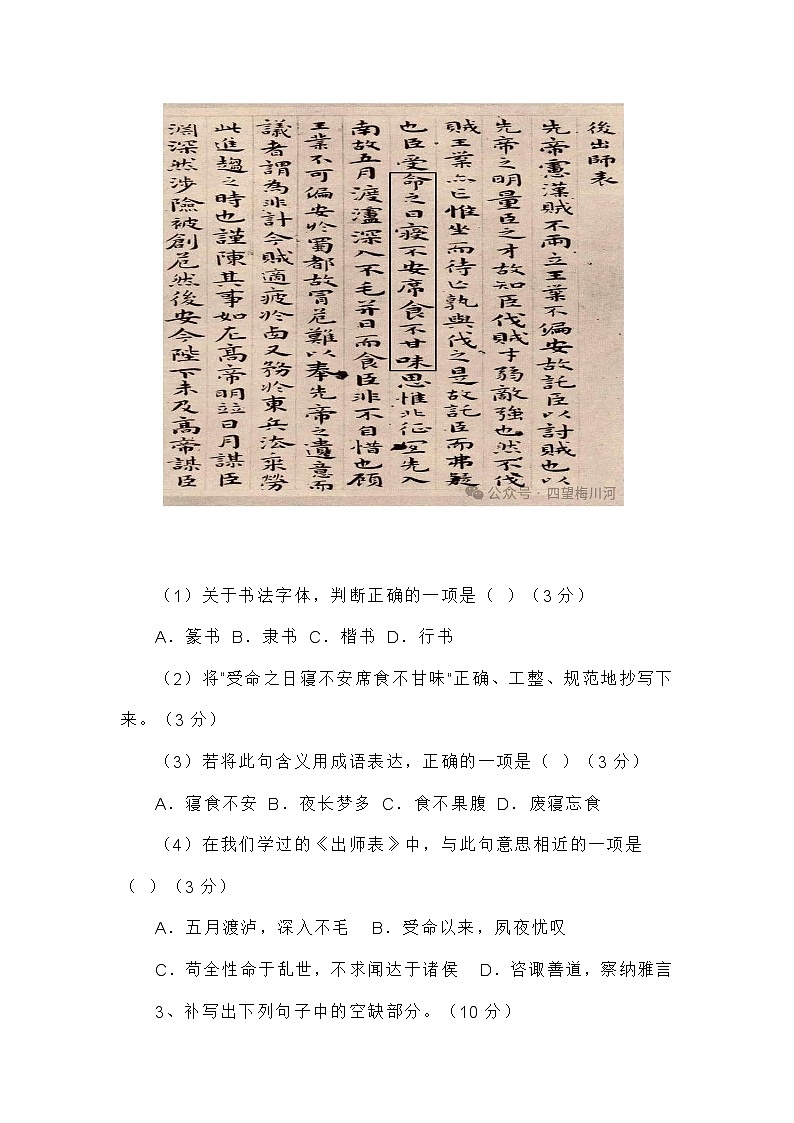 後出師表
先帝慮漢賊不兩立王業不偏安故託臣以討賊也以
先帝之明量臣之才故知臣伐賊才弱敵強也然不伐
賊王業亦亡惟坐而待亡孰與伐之是故託臣而弗疑
也臣受命之日寢不安席食不甘味思惟北征宜先入
南故五月渡瀘深入不毛并日而食臣非不自惜也顧
王業不可偏安於蜀都故冒危難以奉先帝之遺意而
議者謂為非計今賊適疲於西又務於東兵法乘勞
此進趨之時也謹陳其事如左高帝明並日月謀臣
淵深然涉險被創危然後安今陛下未及高帝謀臣
公众号 · 四望梅川河
（1）关于书法字体，判断正确的一项是（ ）（3 分）
A．篆书 B．隶书 C．楷书 D．行书
（2）将“受命之日寝不安席食不甘味”正确、工整、规范地抄写下
来。（3 分）
（3）若将此句含义用成语表达，正确的一项是（ ）（3 分）
A．寝食不安 B．夜长梦多 C．食不果腹 D．废寝忘食
（4）在我们学过的《出师表》中，与此句意思相近的一项是
（ ）（3 分）
A．五月渡泸，深入不毛 B．受命以来，夙夜忧叹
C．苟全性命于乱世，不求闻达于诸侯 D．咨诹善道，察纳雅言
3、补写出下列句子中的空缺部分。（10 分）